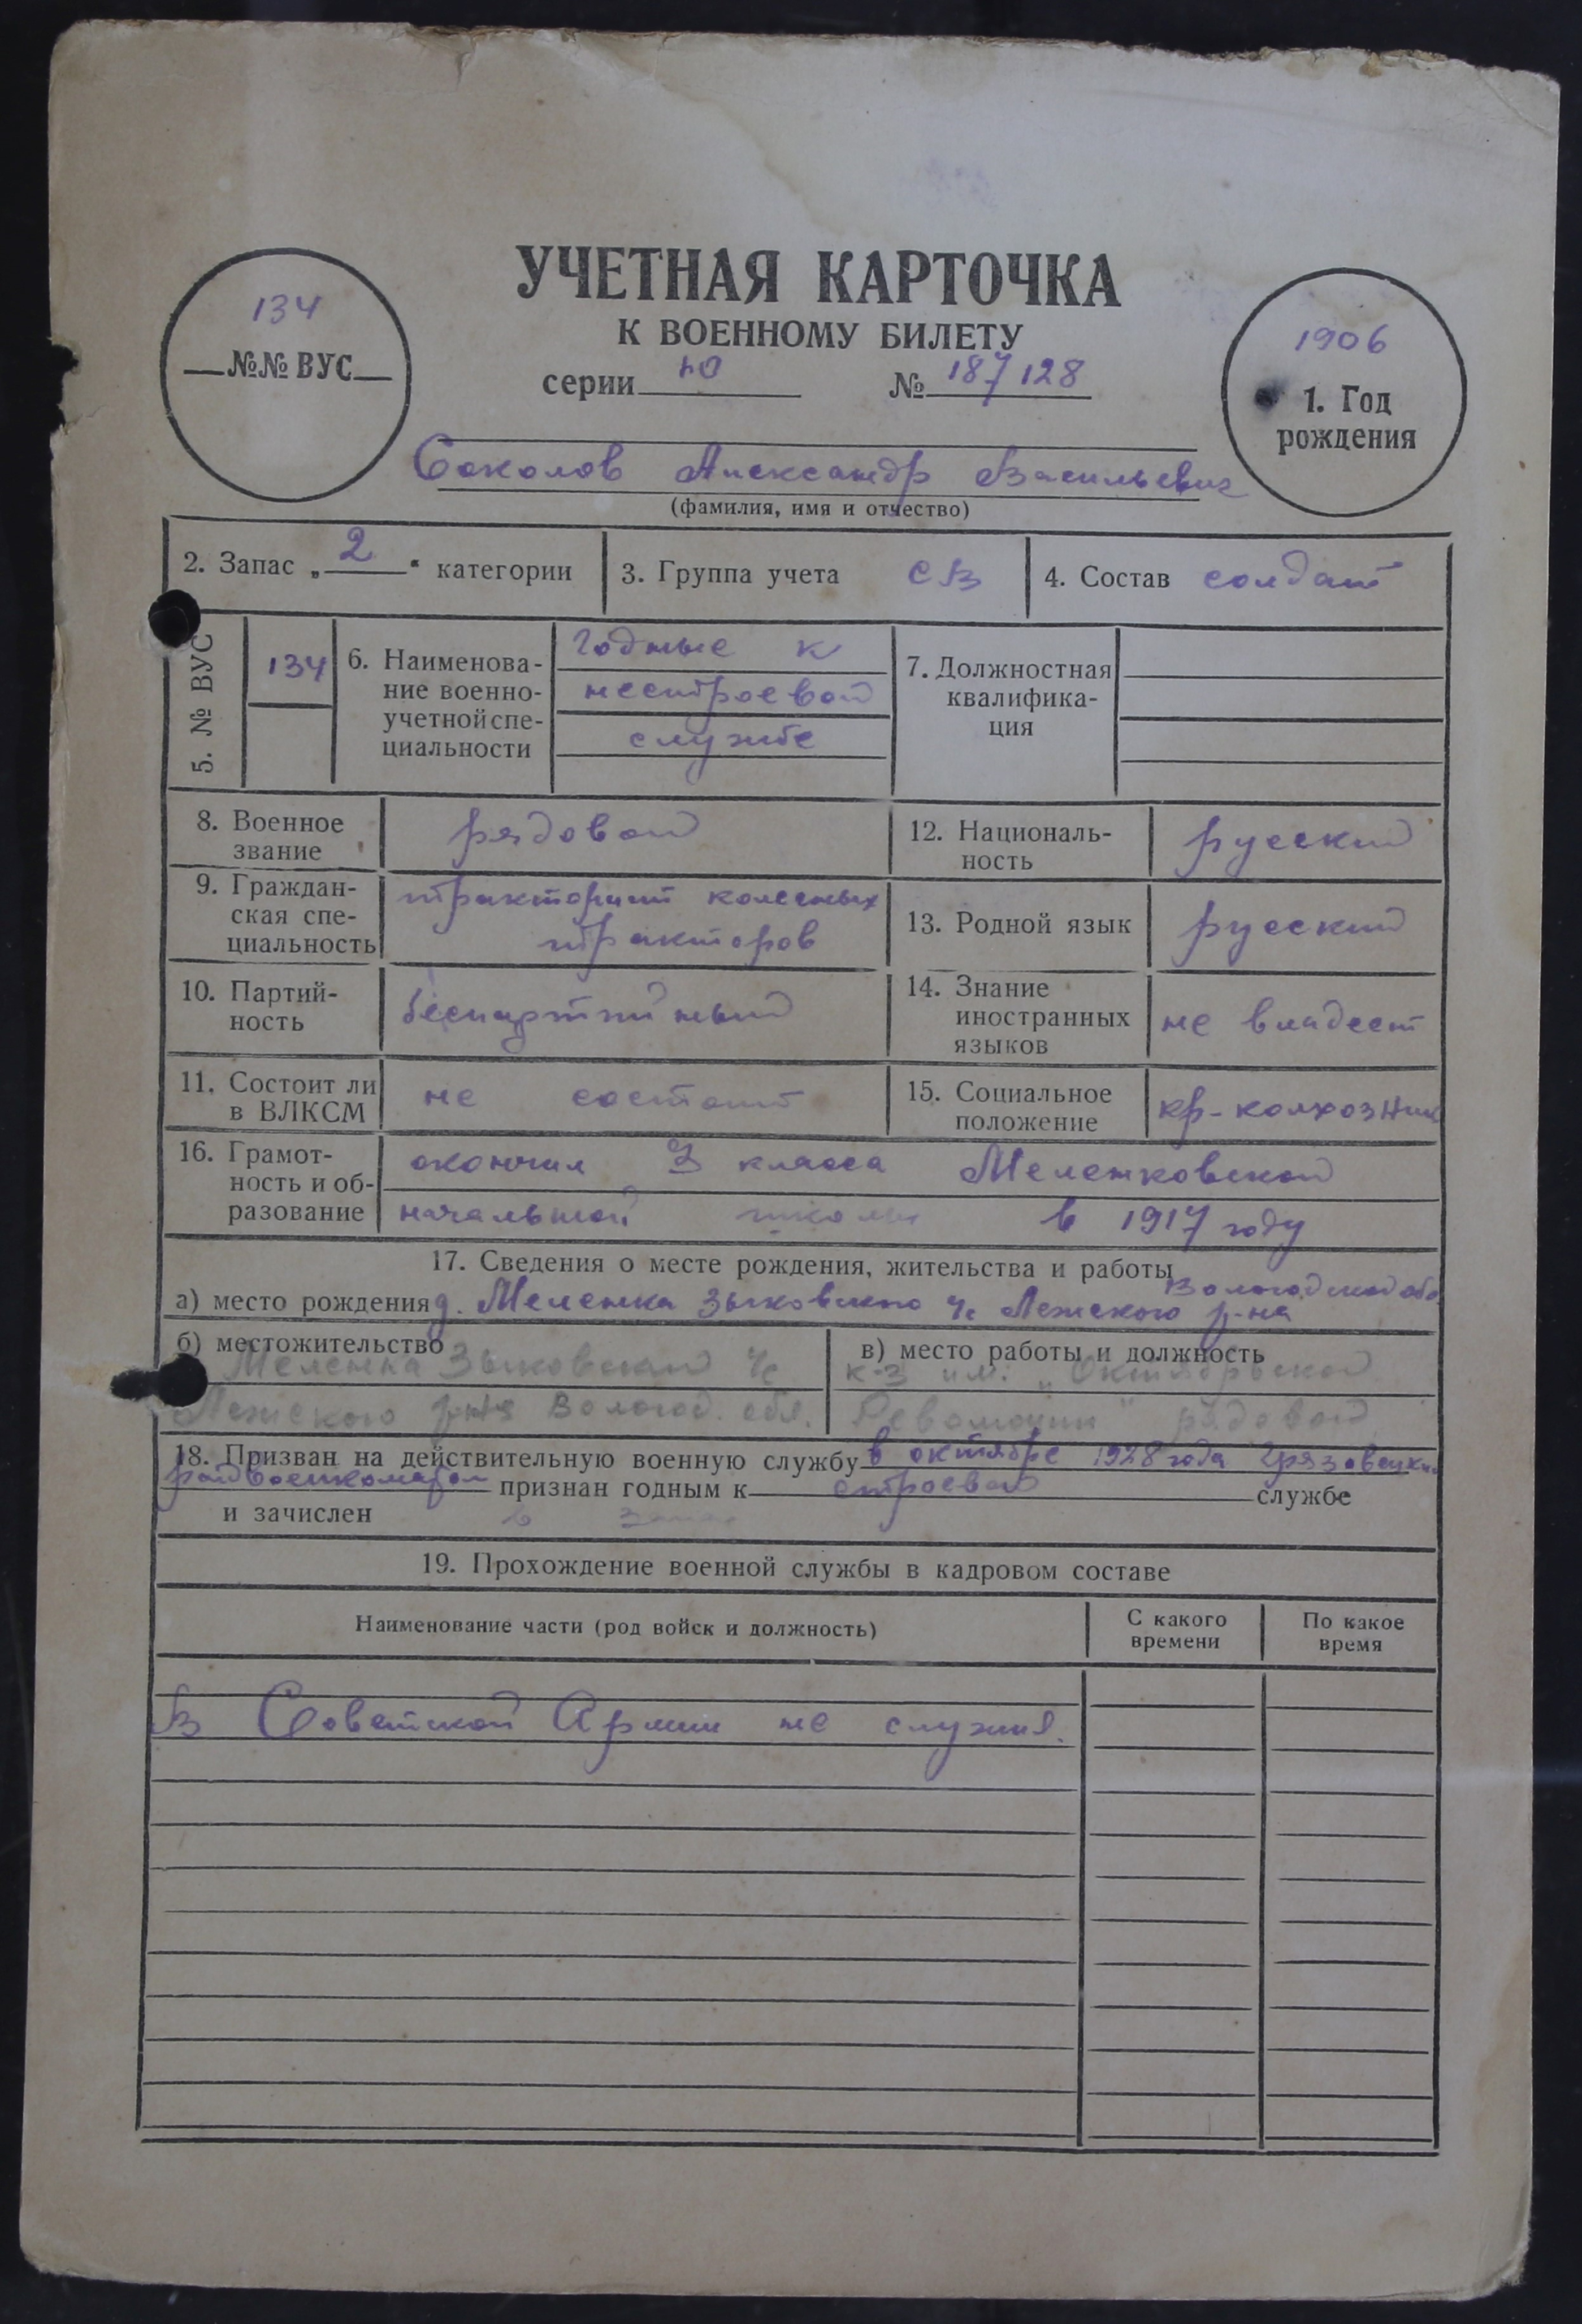 УЧЕТНАЯ КАРТОЧКА
К ВОЕННОМУ БИЛЕТУ
серии Ю № 187128
134
№№ ВУС
1906
1. Год
рождения
Соколов Александр Васильевич
(фамилия, имя и отчество)
2. Запас „2“ категории
3. Группа учета СВ
4. Состав солдат
5. № ВУС
134
6. Наименова-
ние военно-
учетной спе-
циальности
годные к
нестроевой
службе
7. Должностная
квалифика-
ция
8. Военное
звание
рядовой
12. Националь-
ность
русский
9. Граждан-
ская спе-
циальность
тракторист колесных
тракторов
13. Родной язык
русский
10. Партий-
ность
беспартийный
14. Знание
иностранных
языков
не владеет
11. Состоит ли
в ВЛКСМ
не состоит
15. Социальное
положение
кр-колхозник
16. Грамот-
ность и об-
разование
окончил 3 класса Меленковской
начальной школы в 1917 году
17. Сведения о месте рождения, жительства и работы
Вологодской обл
а) место рождения д. Меленка Зыковского с/с Лежского р-на
б) местожительство
Меленка Зыковский с/с
Лежского р-на Волог. обл.
в) место работы и должность
к-з им. „Октябрьской
Революции“ рядовой
18. Призван на действительную военную службу в октябре 1928 года Грязовецким
райвоенкоматом признан годным к строевой службе
и зачислен в запас
19. Прохождение военной службы в кадровом составе
Наименование части (род войск и должность)
С какого
времени
По какое
время
В Советской Армии не служил.